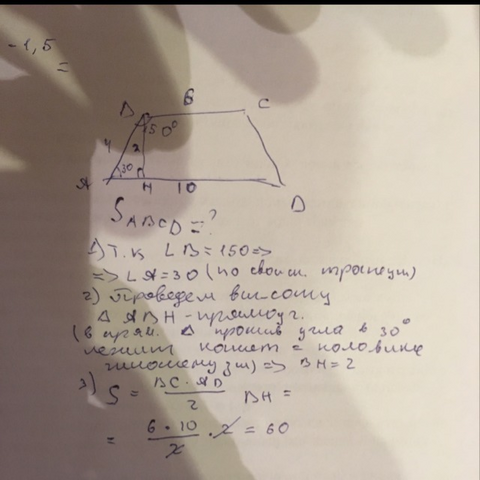 -1,5
=
B 6 C
150°
4 2
30
A H 10 D
S ABCD = ?
1) Т.К ∠B = 150 =>
=> ∠A = 30 (по свойст. трапеции)
2) Проведем высоту
Δ ABH - прямоуг.
(в прям. Δ против угла в 30°
лежит катет = половине
) => BH = 2
3) S = BC · AD / 2 BH =
= 6 · 10 / 2 · 2 = 60